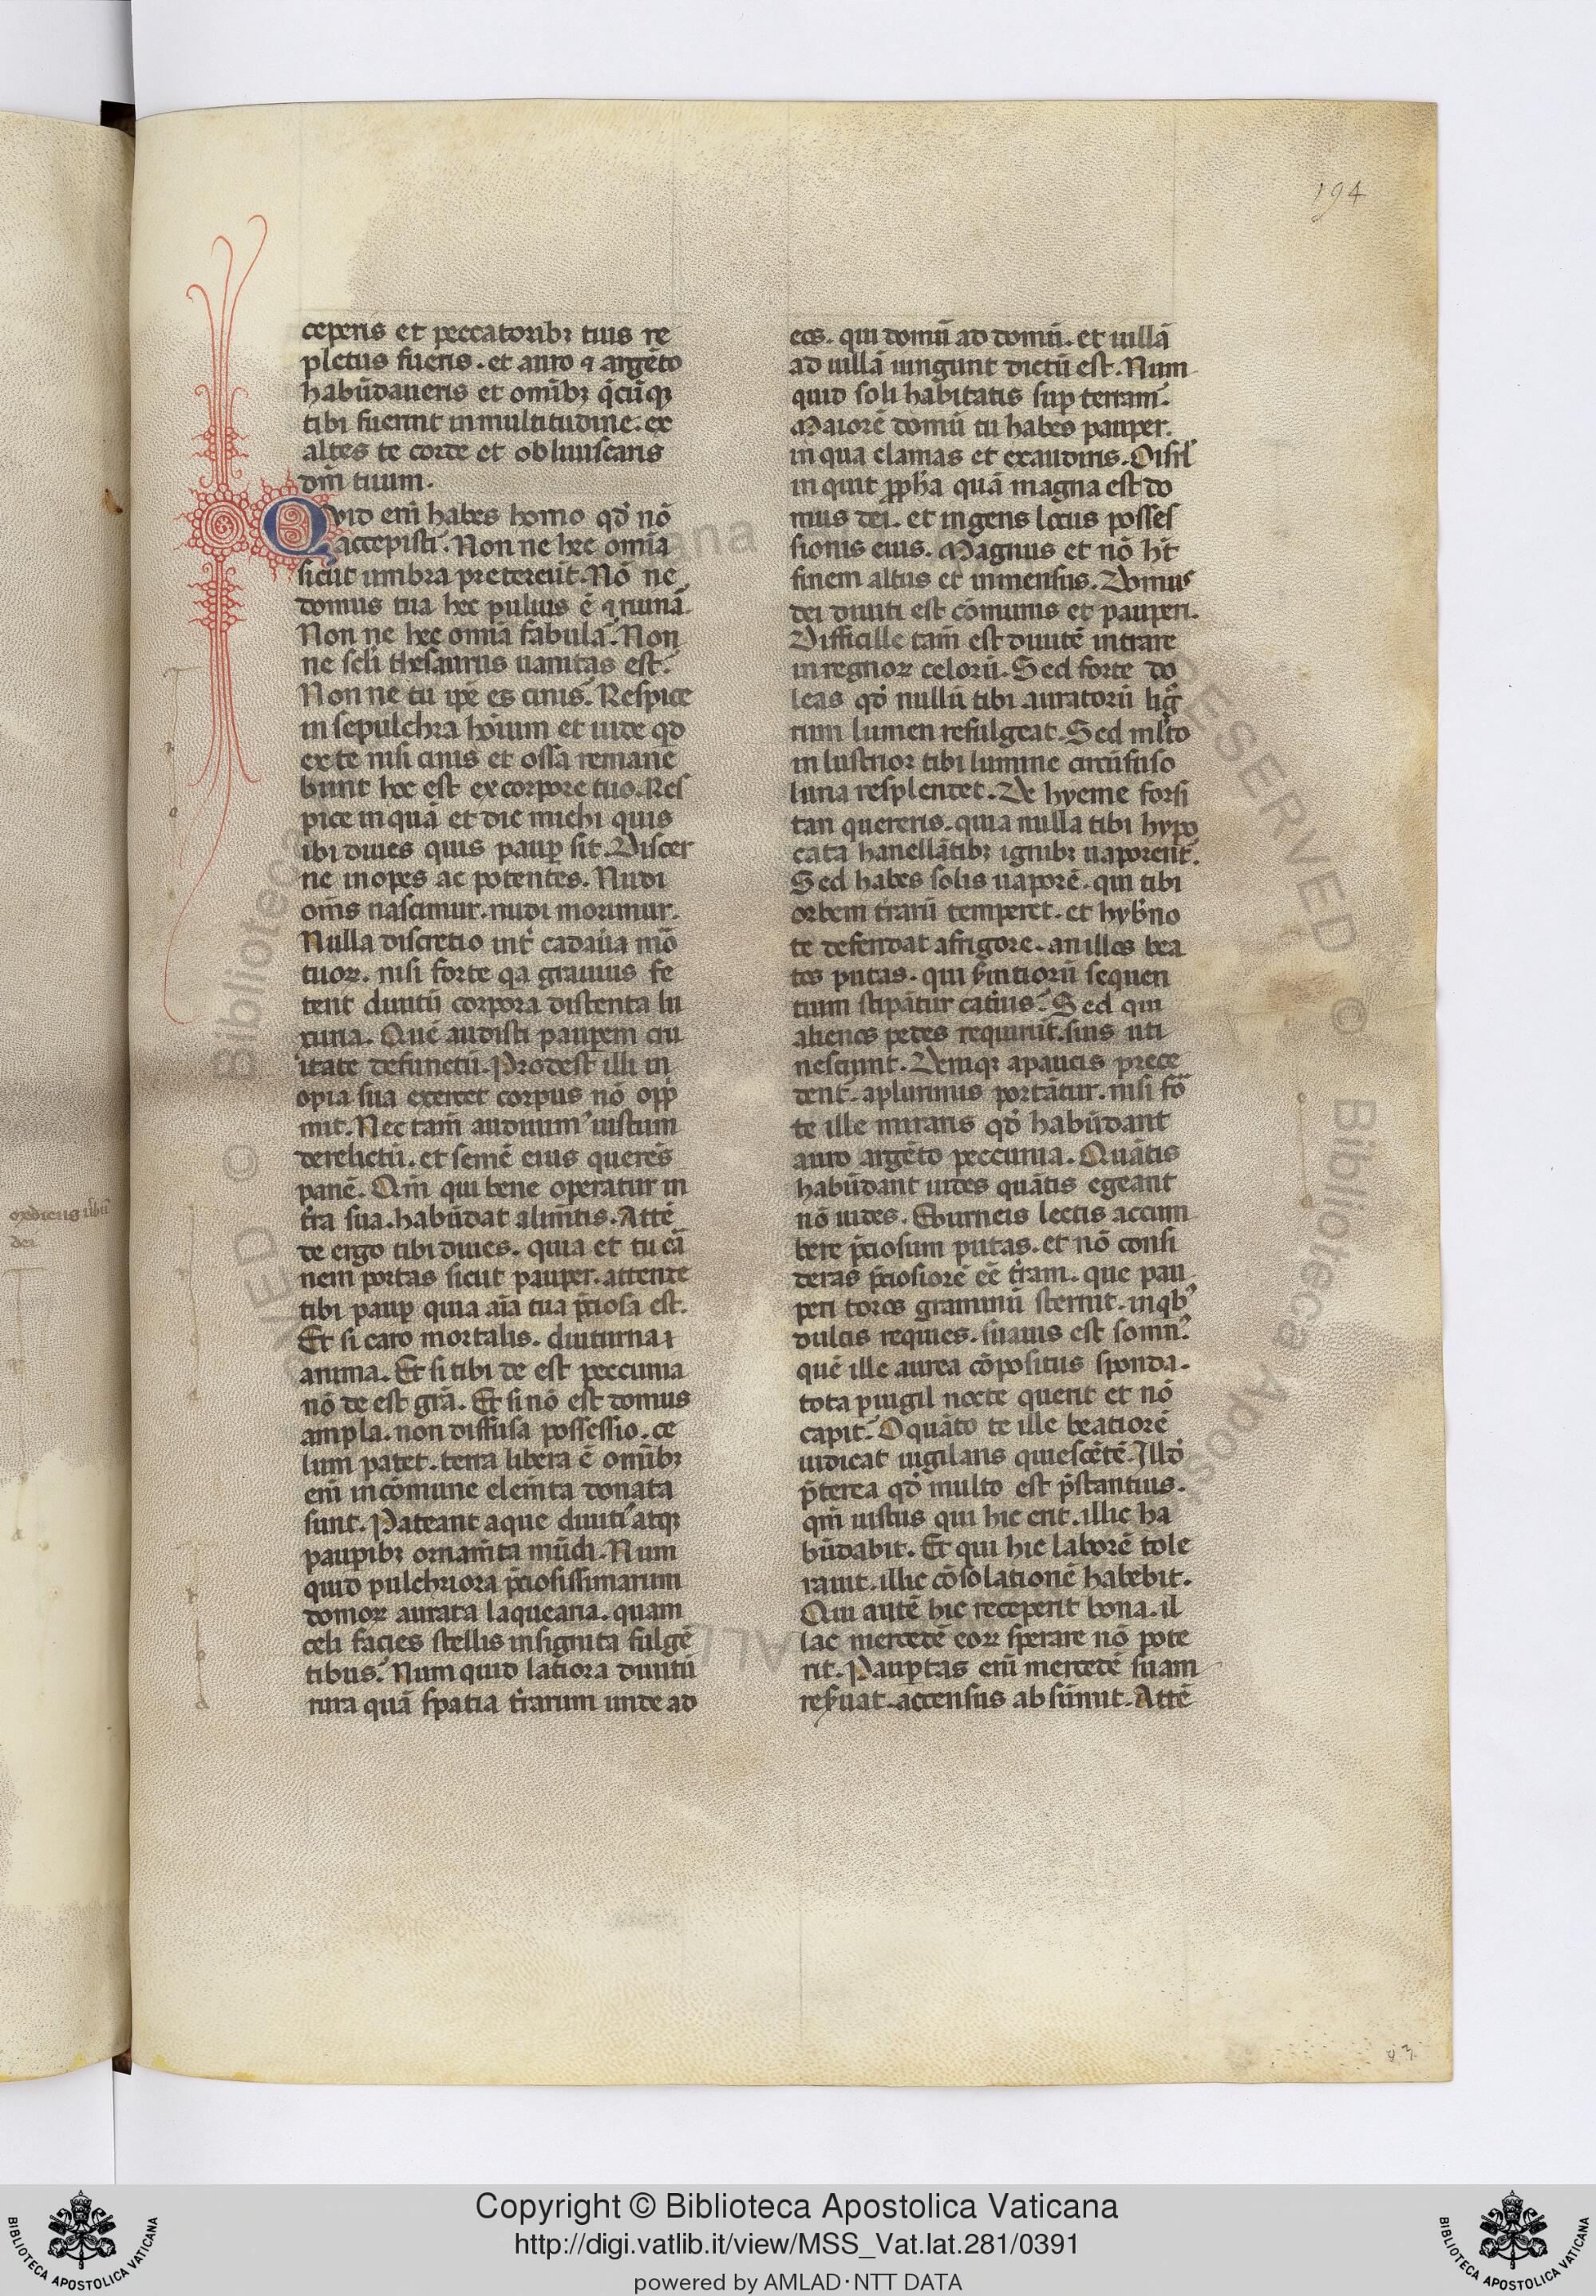 194
ceperis et peccatoribꝫ tuis re
pletus fueris. et auro ⁊ argēto
habūdaueris et omībꝫ q̄cūqꝫ
tibi fuerint in multitudine. ex
altes te corde et obliuiscaris
dn̄m tuum.
Qvid eni̅ habes homo qd̓ nō
accepisti. Non ne hec omīa
sicut umbra pretereūt. Nō ne
domus tua hec puluis ē ⁊ ruina.
Non ne hec omīa fabula. Non
ne seli thesaurus uanitas est.
Non ne tu ip̄e es cinis. Respice
in sepulchra ho̅ium et uide qd
ex te nisi cinis et ossa remane
bunt hoc est ex corpore tuo. Res
pice inquā et dic michi quis
ibi diues quis paup̱ sit. Discer
ne inopes ac potentes. Nudi
om̄s nascimur. nudi morimur.
Nulla discretio int̓ cadau̓a mō
tuoꝝ. nisi forte qa grauius fe
tent diuitū corpora distenta lu
xuria. Quē audisti paup̱em ciu
itate defunctū. Prodest illi in
opia sua exercet corpus nō opp̓
mit. Nec tam̄ audiuim᾽ iustum
derelictū. et semē eius querēs
panē. Qm̄ qui bene operatur in
t̓ra sua. habūdat alim̄tis. Attē
de ergo tibi diues. quia et tu cā
nem portas sicut pauper. attende
tibi paup̱ quia aīa tua p̄ciosa est.
Et si caro mortalis. diuturna ē
anima. Et si tibi de est peccunia
nō de est grā. Et si nō est domus
ampla. non diffusa possessio. ce
lum patet. terra libera ē omībꝫ
eni̅ in cōmune elem̄ta donata
sunt. Pateant aque diuiti atqꝫ
paup̱ibꝫ ornam̄ta mūdi. Num
quid pulchriora p̄ciosissimarum
domoꝝ aurata laquearia. quam
celi facies stellis insignita fulgē
tibus. Num quid latiora diuitū
rura quā spatia t̓rarum unde ad
eos. qui domū ad domū. et uillā
ad uillā iungunt dictū est. Num
quid soli habitatis sup̱ terram.
Maiorē domū tu habes pauper.
in qua clamas et exaudiris. O isr̄l
inquit p̱p̱ha quā magna est do
mus dei. et ingens locus posses
sionis eius. Magnus et nō ht̄
finem altus et inmensus. Domus
dei diuiti est cōmunis et pauperi.
Difficille tam̄ est diuitē intrare
in regnoꝝ celorū. Sed forte do
leas qd̓ nullū tibi auratorū lig̓
rum lumen refulgeat. Sed ml̓to
in lustrior tibi lumine circūfuso
luna resplendet. De hyeme forsi
tan quereris. quia nulla tibi hypo
cata hanellātibꝫ ignibꝫ uaporēt.
Sed habes solis uaporē. qui tibi
orbem t̓rarū temperet. et hyb̓no
te defendat a frigore. an illos bea
tos putas. qui s̓uitiorū sequen
tium stipātur cat̓uis. Sed qui
alienos pedes requirūt. suis uti
nesciunt. Deniqꝫ a paucis prece
dent. a plurimis portātur. nisi fō
te ille miraris qd̓ habūdant
auro argēto peccunia. Quātis
habūdant uides quātis egeant
nō uides. Eburneis lectis accum
bere p̄ciosum putas. et nō consi
deras p̄ciosiorē eē t̓ram. que pau
peri toros graminū sternit. in qb᾽
dulcis requies. suauis est somn᾽.
quē ille aurea cōpositus sponda.
tota p̱uigil nocte querit et nō
capit. O quāto te ille beatiorē
iudicat uigilans quiescētē. Illd̓
p̄terea qd̓ multo est p̄stantius.
qm̄ iustus qui hic erit. illic ha
būdabit. Et qui hic laborē tole
rauit. illic cōsolationē habebit.
Qui autē hic receperit bona. il
lac mercedē eoꝝ sperare nō pote
rit. Paup̱tas eni̅ mercedē suam
res̓uat. accensus absūmit. Attē
Copyright © Biblioteca Apostolica Vaticana
http://digi.vatlib.it/view/MSS_Vat.lat.281/0391
powered by AMLAD·NTT DATA
BIBLIOTECA APOSTOLICA VATICANA
BIBLIOTECA APOSTOLICA VATICANA